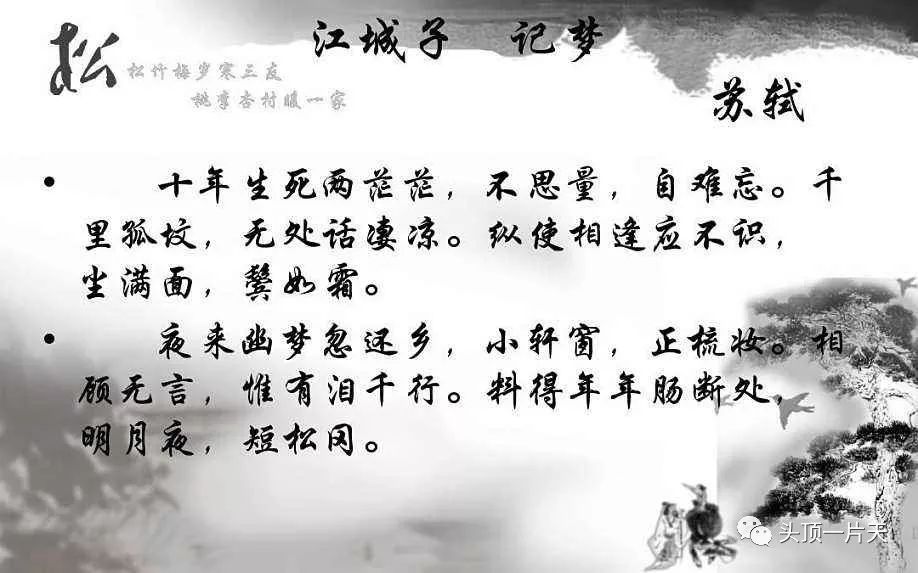 江城子 记梦
松
松竹梅岁寒三友
桃李杏村暖一家
苏轼
• 十年生死两茫茫，不思量，自难忘。千
里孤坟，无处话凄凉。纵使相逢应不识，
尘满面，鬓如霜。
• 夜来幽梦忽还乡，小轩窗，正梳妆。相
顾无言，惟有泪千行。料得年年肠断处，
明月夜，短松冈。
头顶一片天